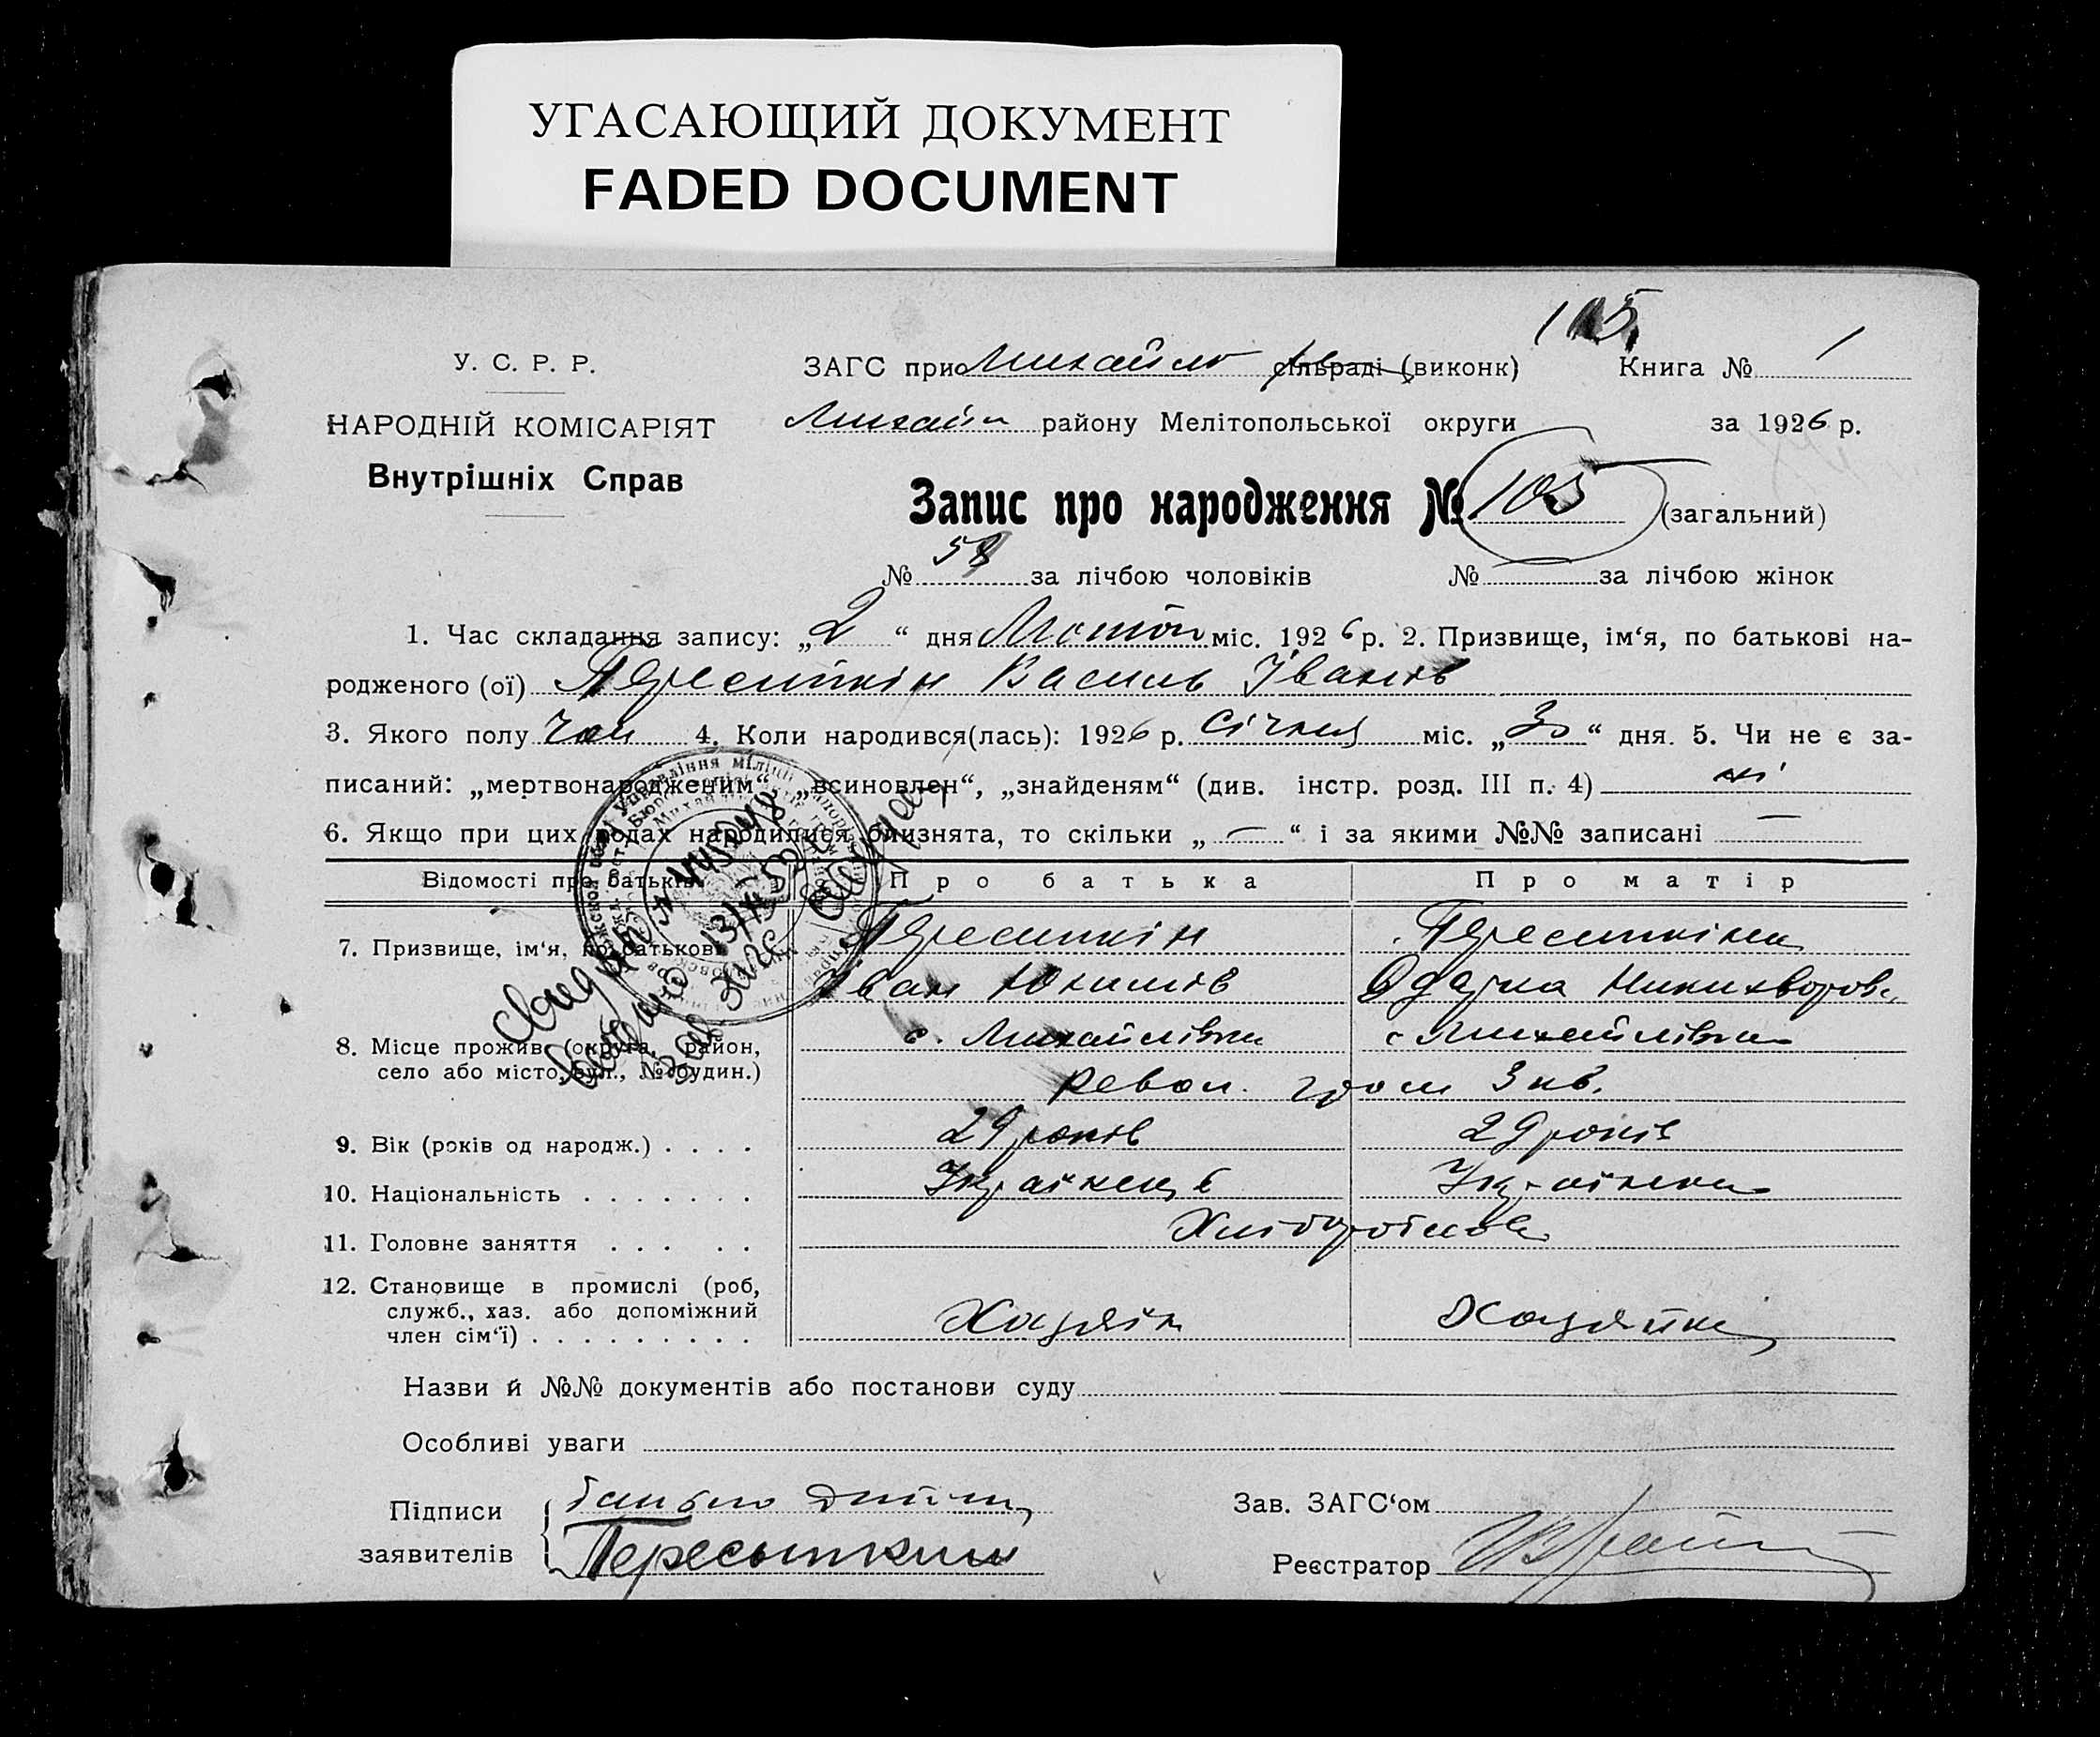 УГАСАЮЩИЙ ДОКУМЕНТ
FADED DOCUMENT
105
У. С. Р. Р.
ЗАГС при Михайло сільраді (виконк) Книга № 1
НАРОДНІЙ КОМІСАРІЯТ
Михайл району Мелітопольської округи за 1926 р.
Внутрішніх Справ
Запис про народження № 105 (загальний)
№ 58 за лічбою чоловіків № за лічбою жінок
1. Час складання запису: „2“ дня Лютого міс. 1926 р. 2. Призвище, ім‘я, по батькові на-
родженого (ої) Пересипкін Василь Іванів
3. Якого полу чол 4. Коли народився(лась): 1926 р. Січня міс. „30“ дня. 5. Чи не є за-
писаний: „мертвонародженим“, „всиновлен“, „знайденям“ (див. інстр. розд. III п. 4) ні
6. Якщо при цих родах народилися близнята, то скільки „—“ і за якими №№ записані —
Відомості про батьків Про батька Про матір
7. Призвище, ім‘я, по батькові Пересипкін Пересипкіна
Іван Юхимів Одарка Никихворовн
8. Місце прожив. (округа, район, с. Михайлівка с Михайлівка
село або місто, вул., № будин.) Револ. гром 3 кв.
9. Вік (років од народж.) . . . . 29 років 29 років
10. Національність . . . . . . . Українець Українка
11. Головне заняття . . . . . Хліборобство
12. Становище в промислі (роб,
служб., хаз. або допоміжний
член сім‘ї) . . . . . . . . . Хазяїн Хазяйка
Назви й №№ документів або постанови суду
Особливі уваги
Підписи батько дитини Зав. ЗАГС‘ом
заявителів Пересыпкин Реєстратор